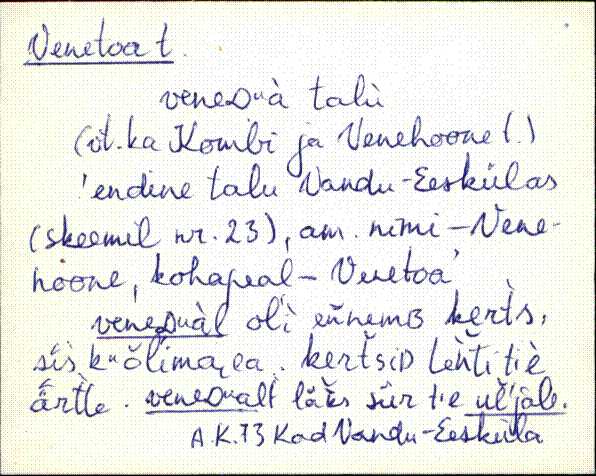 Venetoa t.
veneDuà talù
(vt. ka Kombi ja Venehoone t.)
'endine talu Vandu-Eeskülas
(skeemil nr. 23), am. nimi – Vene-
hoone, kohapeal – Venetoa'
veneDuàl oľì eňnemB kerťs,
sìs kuõlimaea. kerťsiD
ärtle. veneDualt sūr tie uľ'jalˎ.
A.K.73 Kad Vandu-Eesküla